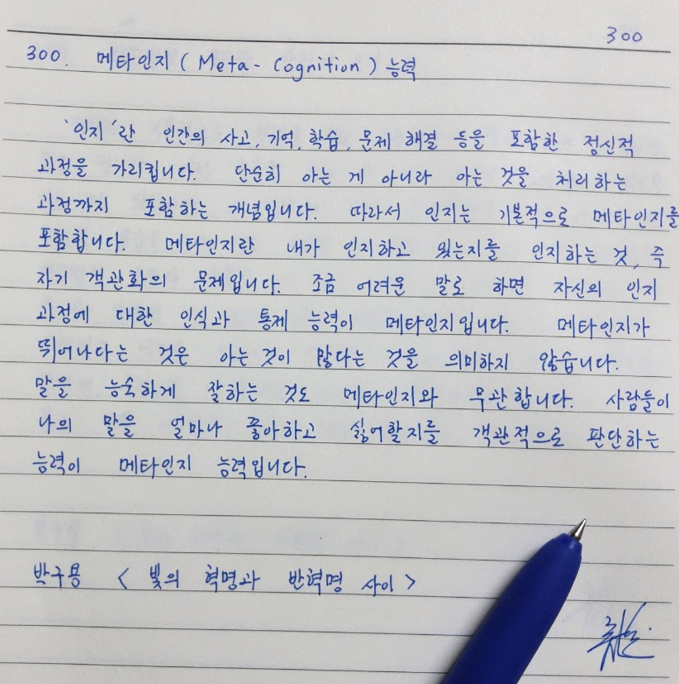 300
300. 메타인지 ( Meta - Cognition ) 능력
'인지'란 인간의 사고, 기억, 학습, 문제 해결 등을 포함한 정신적
과정을 가리킵니다. 단순히 아는 게 아니라 아는 것을 처리하는
과정까지 포함하는 개념입니다. 따라서 인지는 기본적으로 메타인지를
포함합니다. 메타인지란 내가 인지하고 있는지를 인지하는 것, 즉
자기 객관화의 문제입니다. 조금 어려운 말로 하면 자신의 인지
과정에 대한 인식과 통제 능력이 메타인지입니다. 메타인지가
뛰어나다는 것은 아는 것이 많다는 것을 의미하지 않습니다.
말을 능숙하게 잘하는 것도 메타인지와 무관합니다. 사람들이
나의 말을 얼마나 좋아하고 싫어할지를 객관적으로 판단하는
능력이 메타인지 능력입니다.
박구용 < 빛의 혁명과 반혁명 사이 >